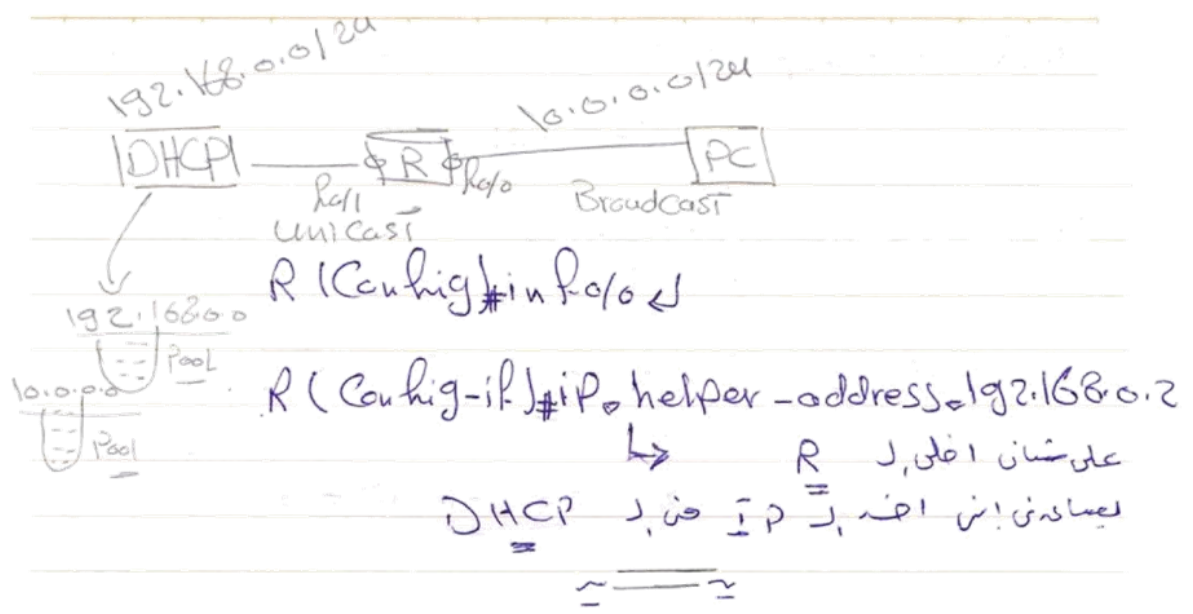 192.168.0.0/24
10.0.0.0/24
DHCP
R
PC
fa0/1
fa0/0
Unicast
Broadcast
R(Config)#in fa0/0 ↵
192.168.0.0
Pool
10.0.0.0
Pool
R(Config-if)#ip helper-address 192.168.0.2
على شان اخلي ال R
يساعدني اني اخد ال IP من ال DHCP